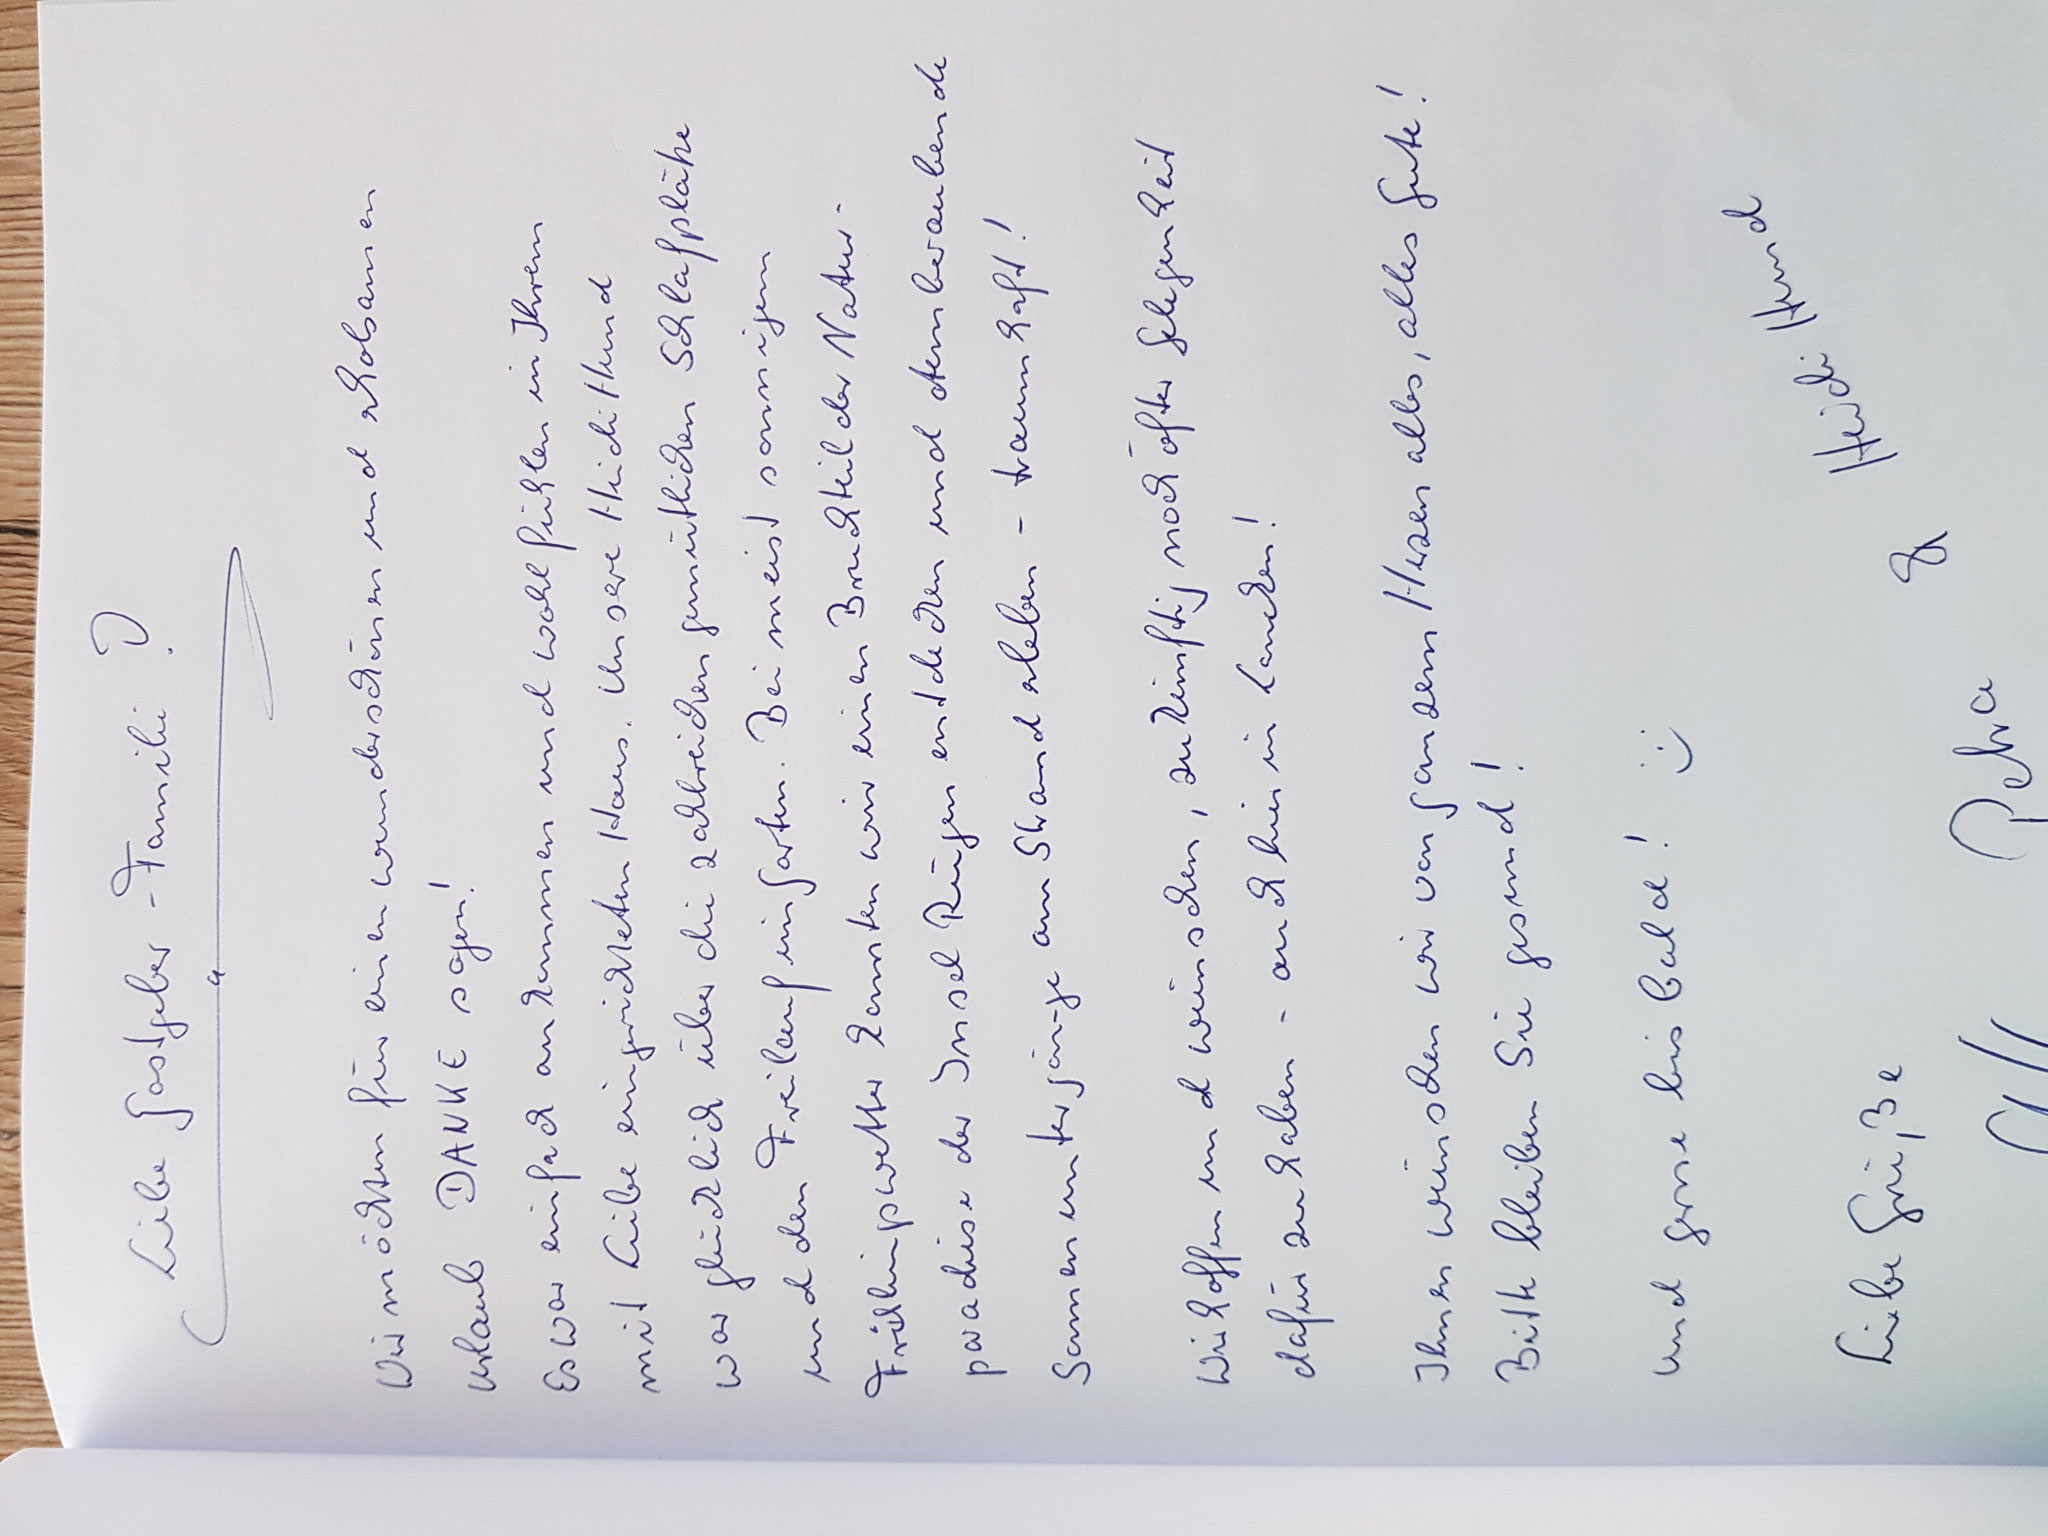 Liebe Gastgeber-Familie!
Wir möchten für einen wunderschönen und erholsamen
Urlaub DANKE sagen!
Es war einfach ankommen und wohlfühlen in Ihrem
mit Liebe eingerichteten Haus. Unsere Heidi Hund
war glücklich über die zahlreichen gemütlichen Schlafplätze
und den Freilauf im Garten. Bei meist sonnigem
Frühlingswetter konnten wir einen Bruchteil der Natur-
paradiese der Insel Rügen entdecken und atemberaubende
Sonnenuntergänge am Strand erleben - traumhaft!
Wir hoffen und wünschen, zukünftig noch öfter Gelegenheit
dafür zu haben - auch hier in Lancken!
Ihnen wünschen wir von ganzem Herzen alles, alles Gute!
Bitte bleiben Sie gesund!
Und gerne bis bald! :-)
Liebe Grüße
Petra & Heidi Hund